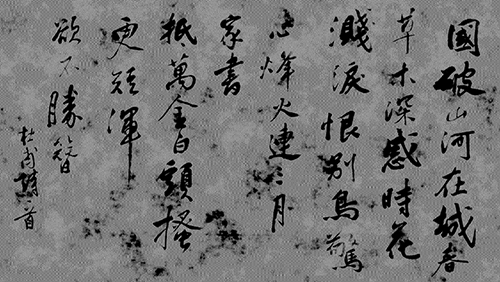 國破山河在城春
草木深感時花
濺淚恨別鳥驚
心烽火連三月
家書
抵萬金白頭搔
更短渾
欲不勝簪
杜甫詩一首